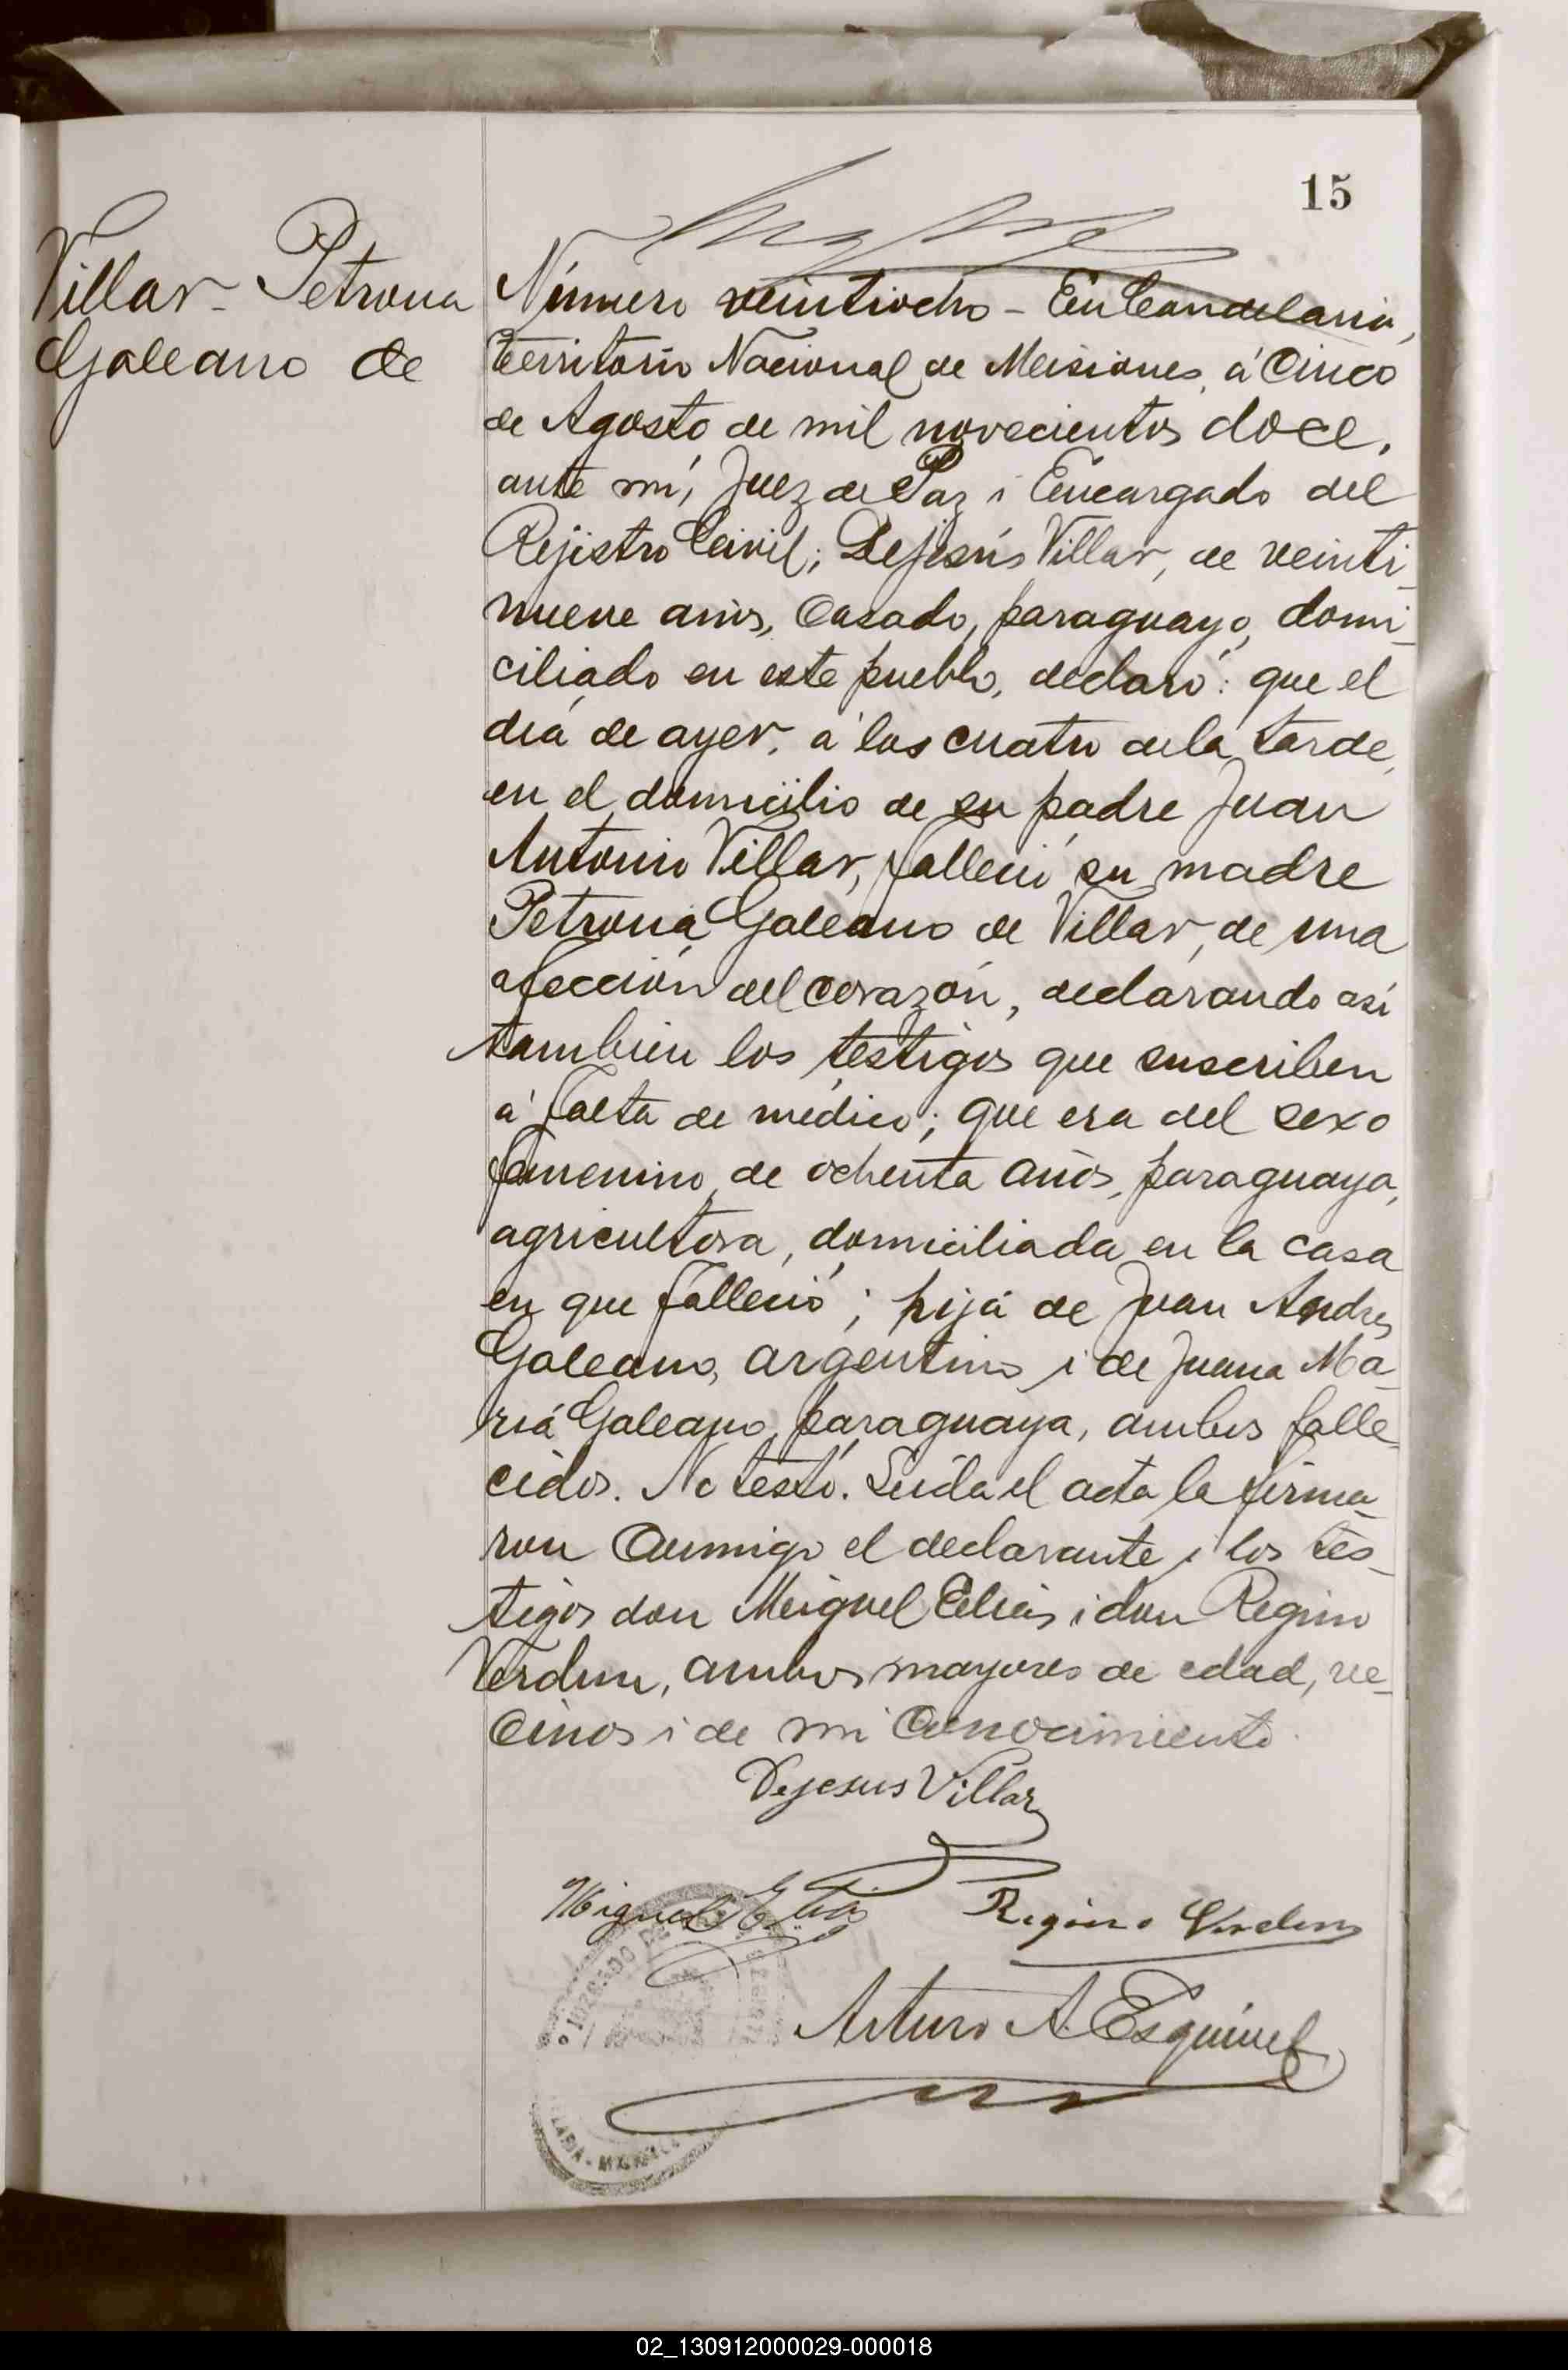 15
Villar - Petrona
Galeano de
Número veintiocho - En Candelaria,
territorio Nacional de Misiones, á cinco
de Agosto de mil novecientos doce,
ante mí, Juez de Paz i Encargado del
Rejistro Civil; Dejesús Villar, de veinti-
nueve años, casado, paraguayo, domi-
ciliado en este pueblo, declaró: que el
día de ayer, á las cuatro de la tarde,
en el domicilio de su padre Juan
Antonio Villar, falleció su madre
Petrona Galeano de Villar, de una
afección del corazón, declarando así
tambien los testigos que suscriben
á falta de médico; que era del sexo
femenino, de ochenta años, paraguaya,
agricultora, domiciliada en la casa
en que falleció; hija de Juan Andres
Galeano, argentino i de Juana Ma-
ria Galeano, paraguaya, ambos falle-
cidos. No testó. Leida el acta la firma-
ron conmigo el declarante i los tes-
tigos don Miguel Elias i don Regino
Verdun, ambos mayores de edad, ve-
cinos i de mi conocimiento.
Dejesus Villar
Miguel Elias Regino Verdun
Arturo A. Esquivel
JUZGADO DE
02_130912000029-000018